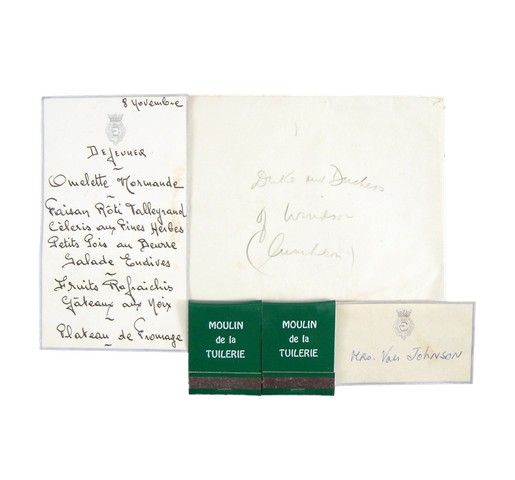 8 Novembre
Dejeuner
Omelette Normande
Faisan Rôti Talleyrand
Cèleris aux Fines Herbes
Petits Pois au Beurre
Salade Endives
Fruits Rafraichis
Gâteaux aux Noix
Plateau de Fromage
Duke and Duchess
of Windsor
(Luncheon)
MOULIN
de la
TUILERIE
MOULIN
de la
TUILERIE
Mrs. Van Johnson